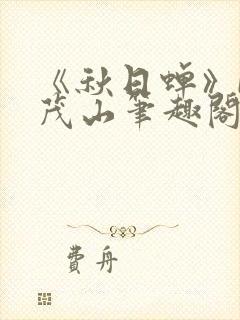 《秋日蝉》
茂山笔趣阁
费舟